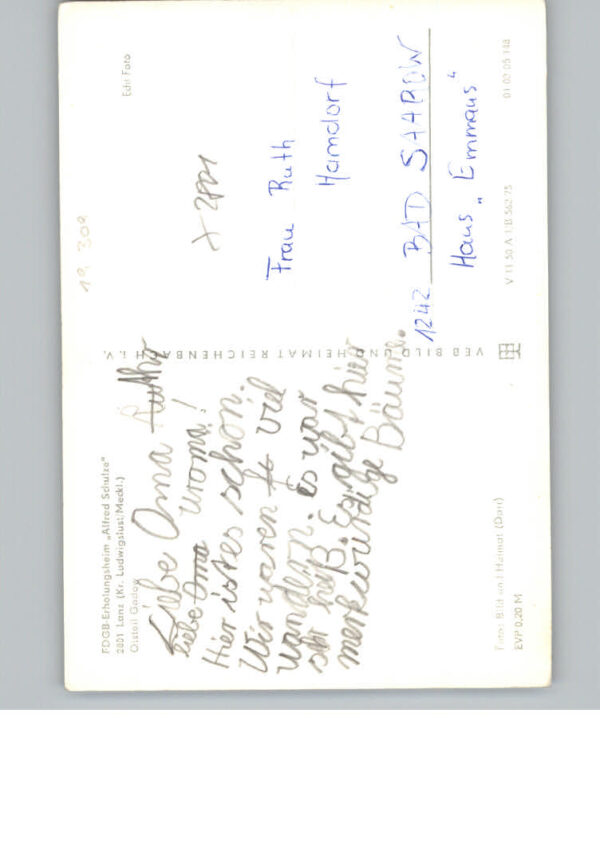 FDGB-Erholungsheim „Alfred Schulze"
2801 Lanz (Kr. Ludwigslust/Meckl.)
Ortsteil Gadow
Liebe Oma Ruth
liebe Oma uroma!
Hier ist es schön.
Wir waren viel
wandern. Es war
sehr heiß. Es gibt hier
merkwürdige Bäume.
Foto: Bild und Heimat (Dorr)
EVP 0,20 M
VEB BILD UND HEIMAT REICHENBACH i. V.
19 309
Echt Foto
X 2801
Frau Ruth
Hamdorf
1242 BAD SAAROW
Haus „Emmaus"
V 11 50 A 1/B 562/75
01 02 05 148